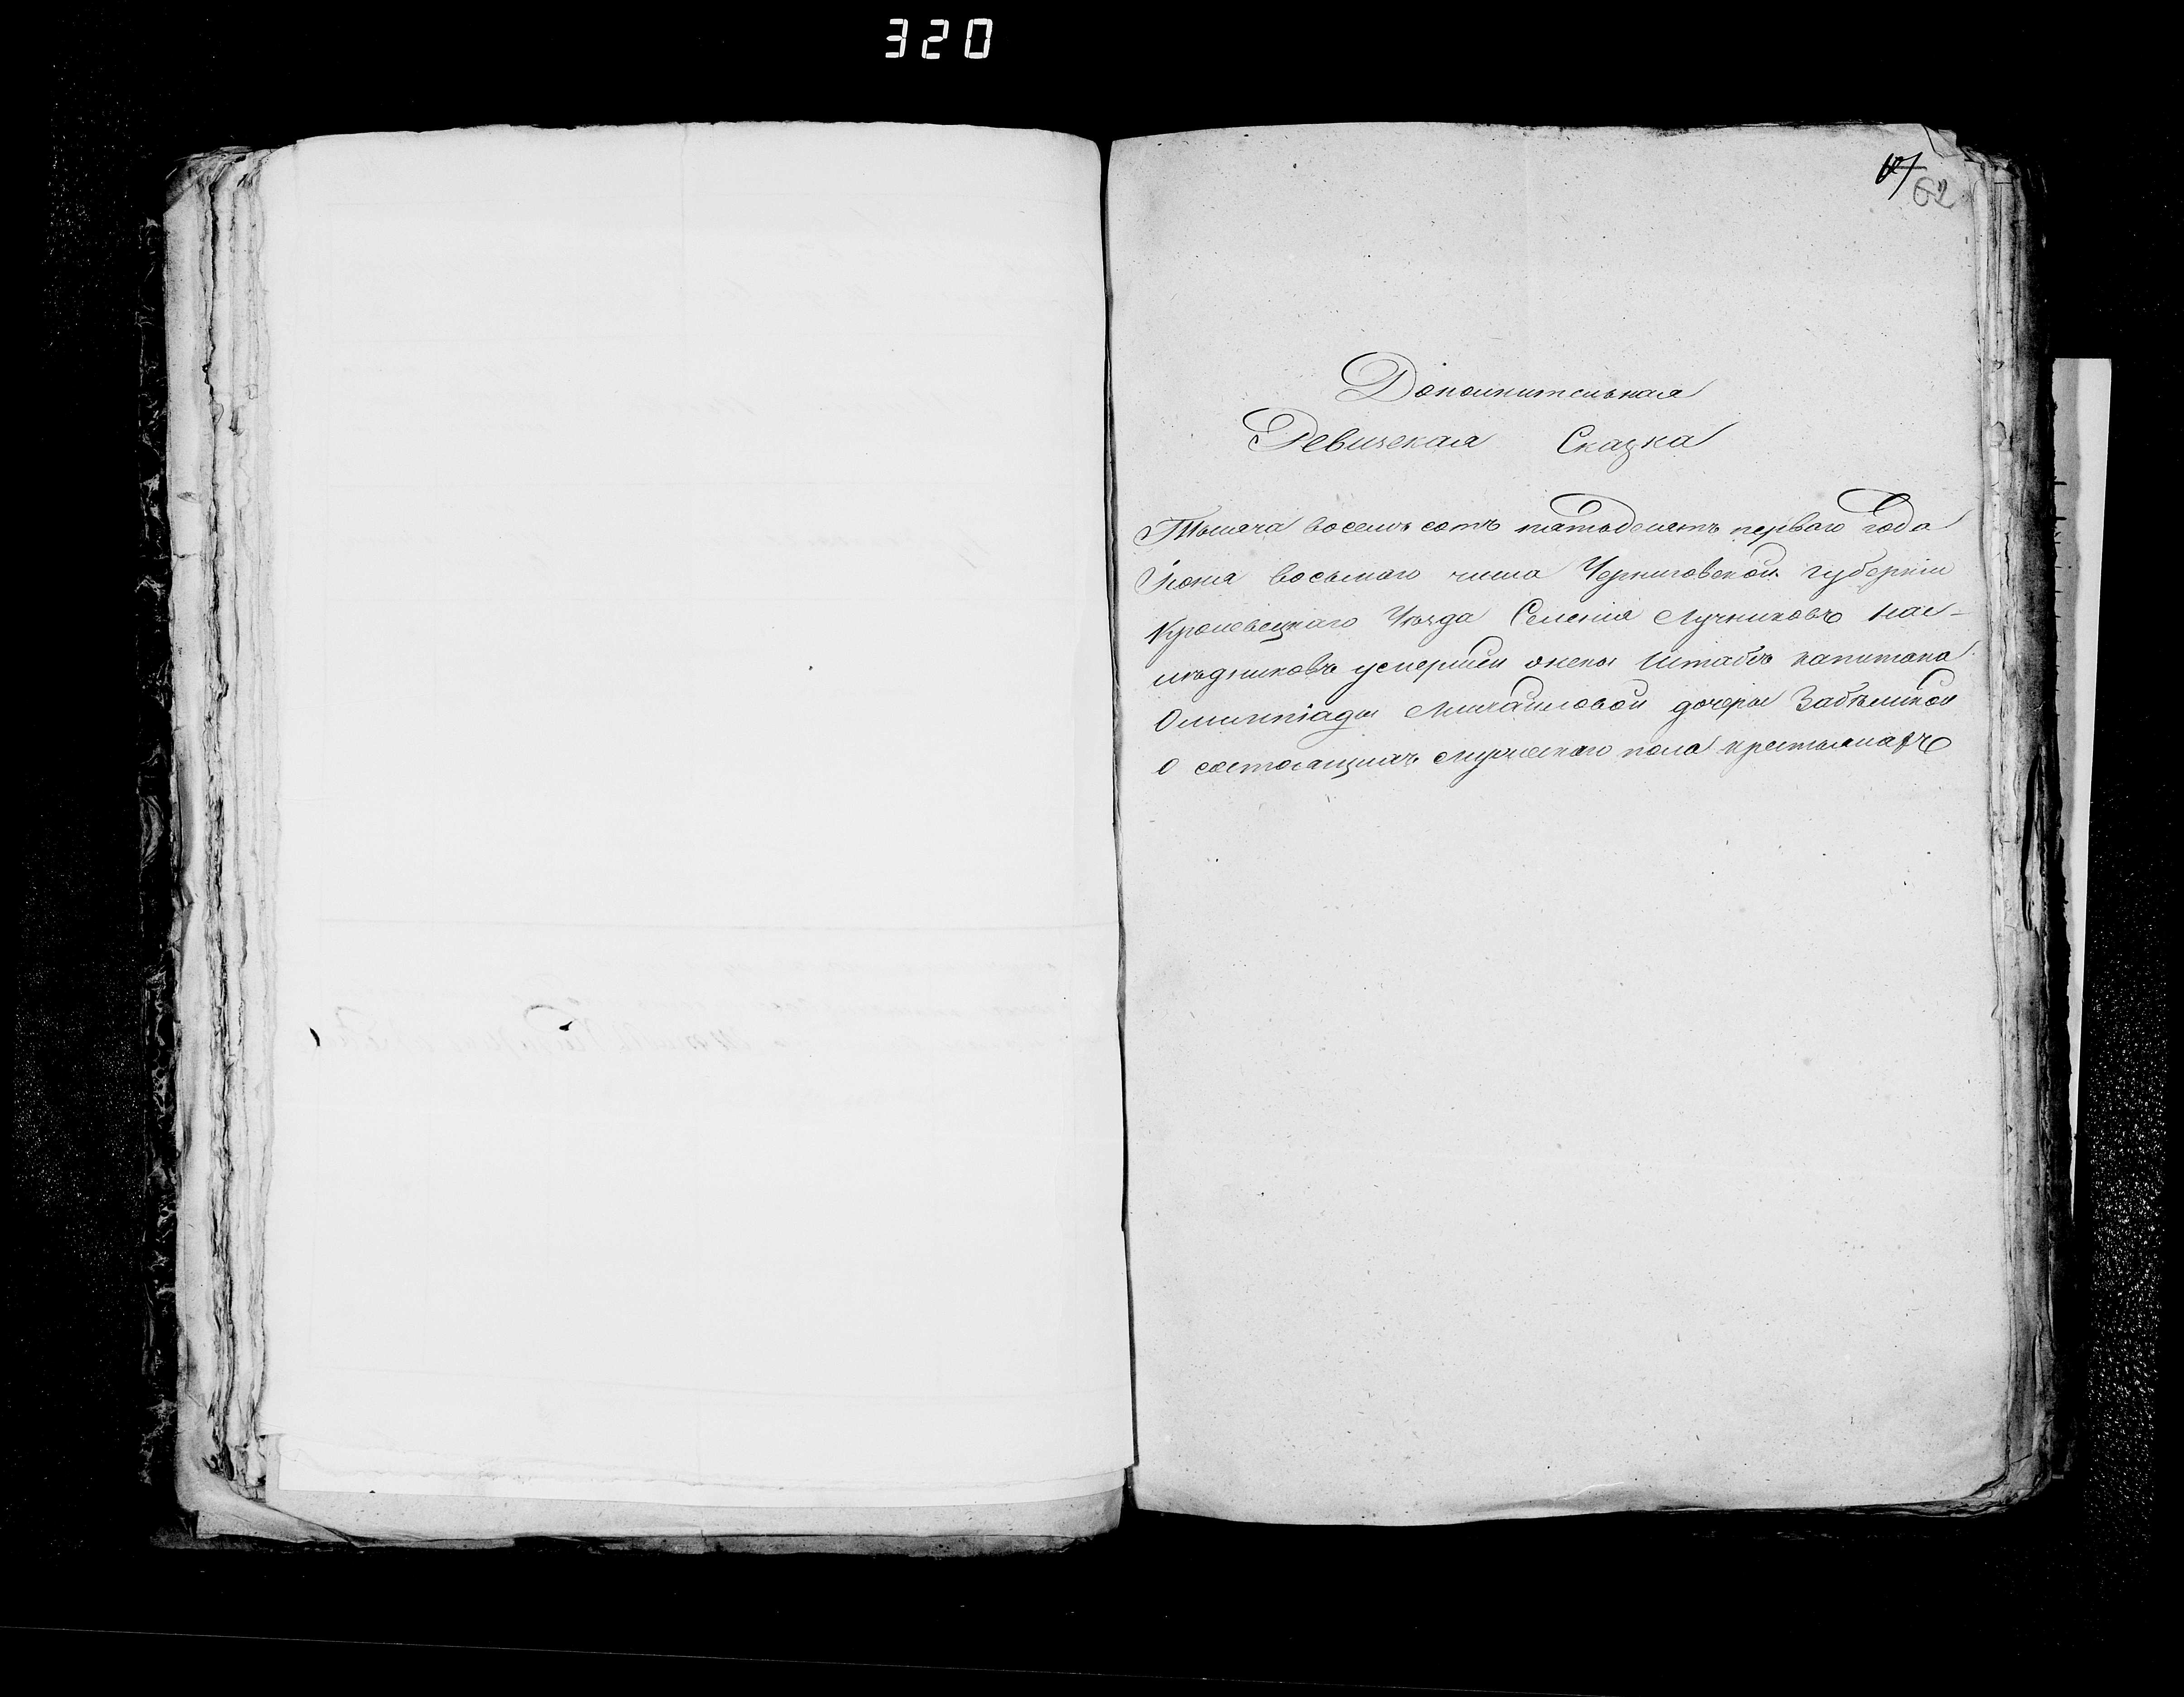 320
62
Дополнительная
Ревизская Сказка
Тысяча восемь сотъ пятьдесятъ перваго года
Іюня восьмаго числа Черниговской губерніи
Кролевецкаго Уѣзда Селенія Лучниковъ нас-
лѣдниковъ умершей жены Штабсъ капитана
Олимпіады Михайловой дочери Забѣлиной
О состоящихъ мужескаго пола крестьянахъ